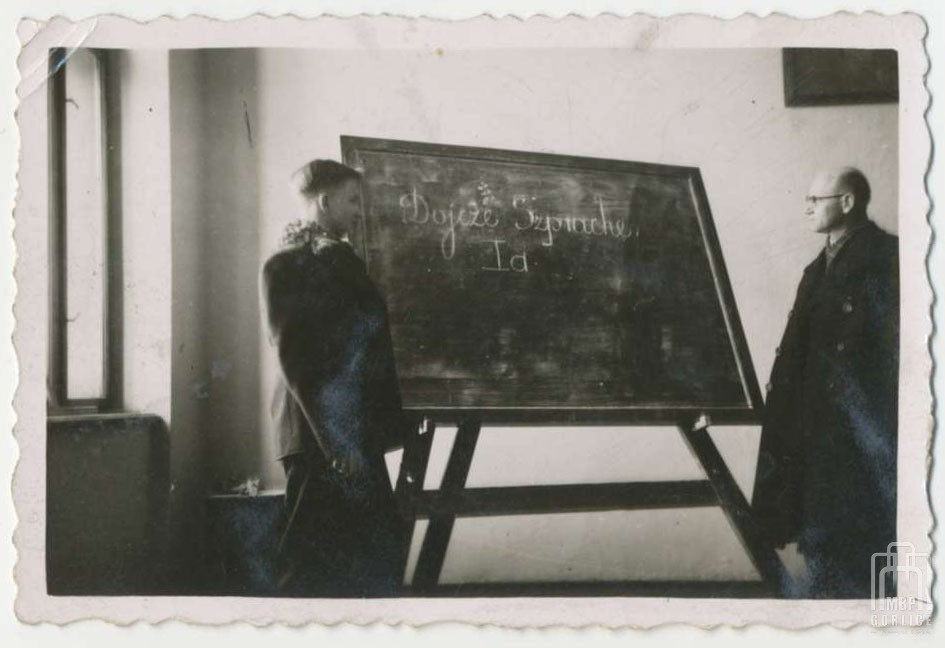 Dojcze Szprache
Id
MBP
GORLICE